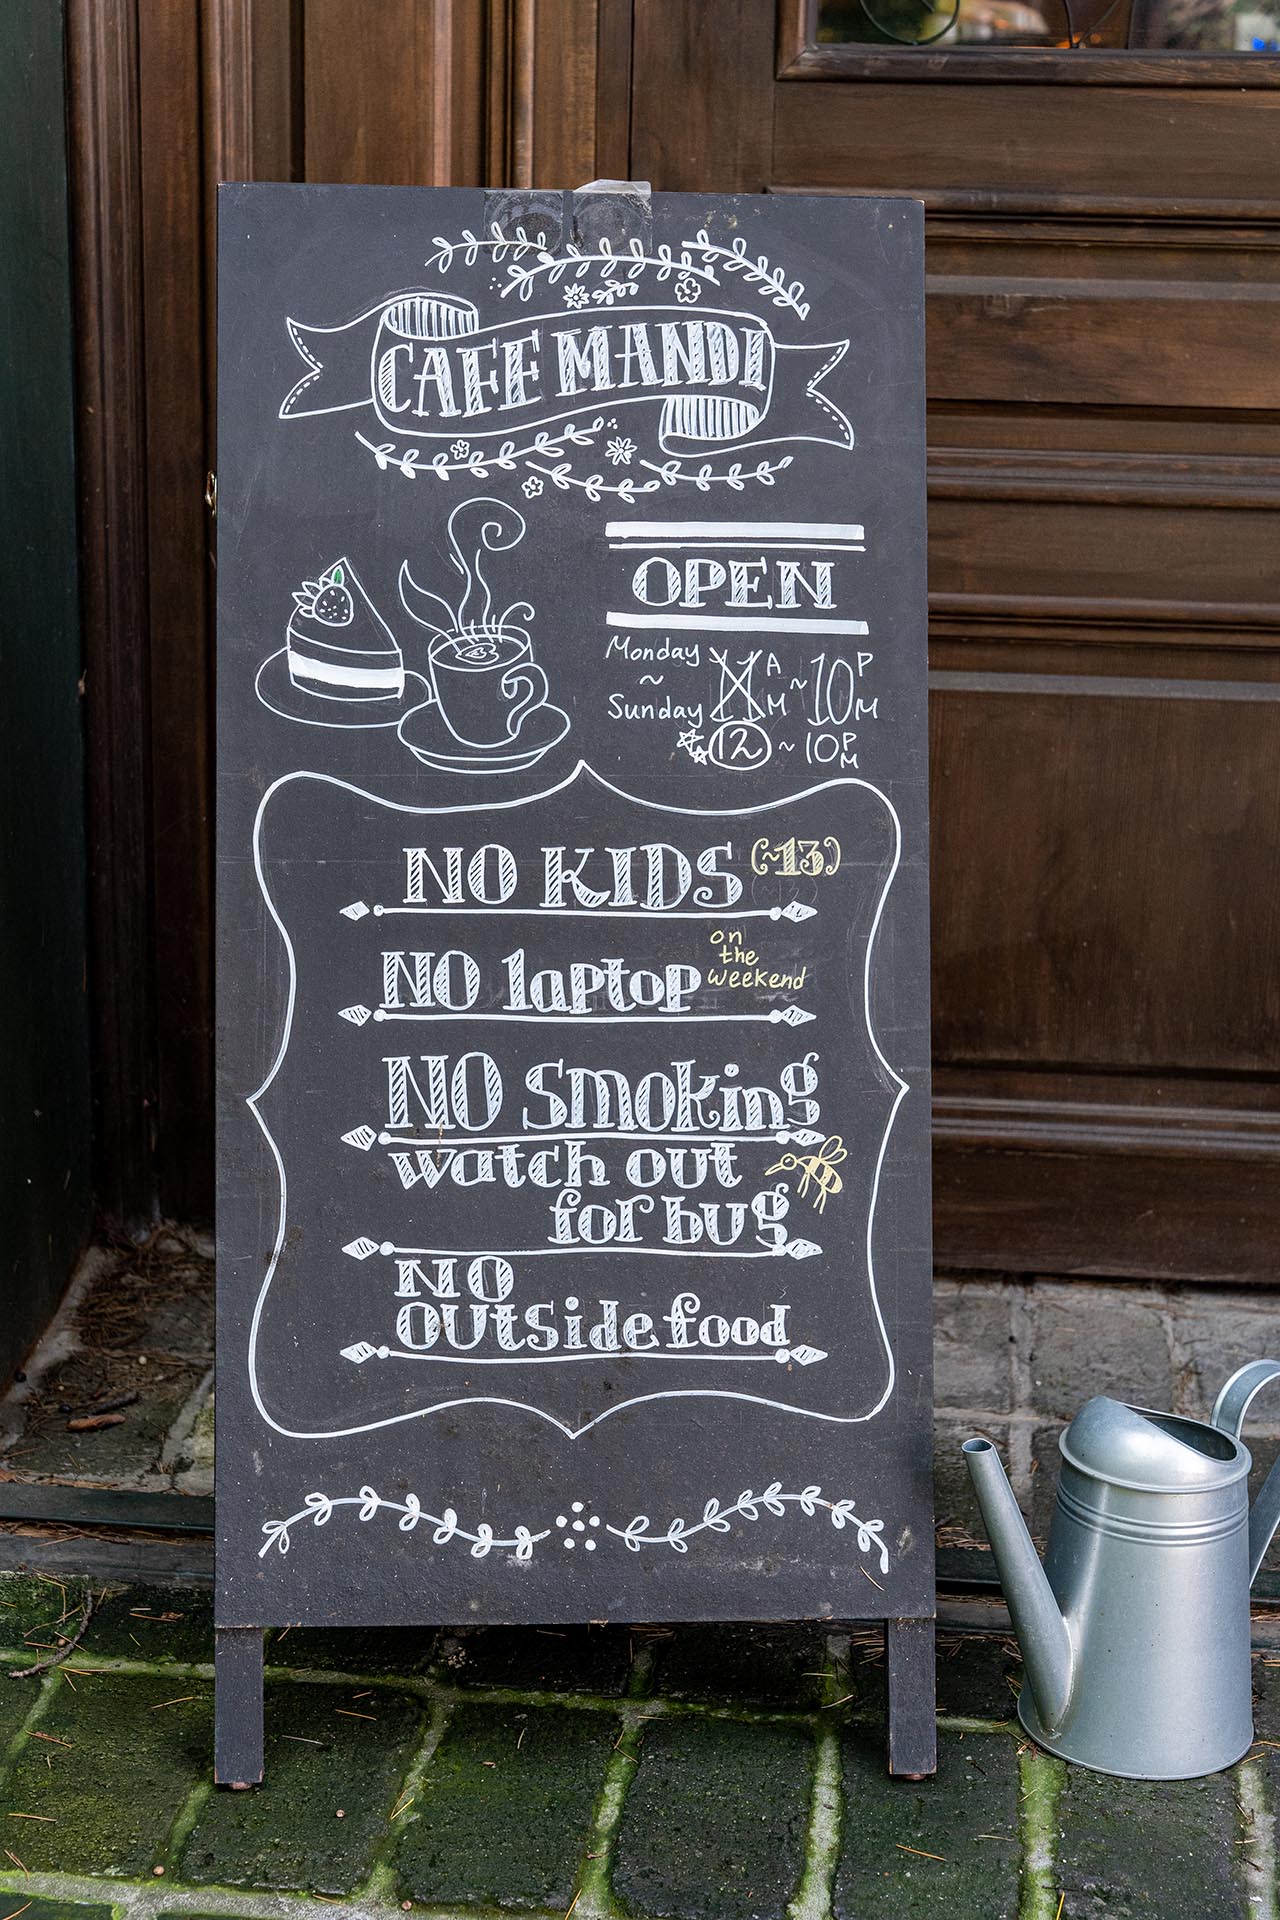 CAFE MANDI
OPEN
Monday
~
Sunday
11AM ~ 10PM
12 ~ 10PM
NO KIDS (~13)
NO laptop on the weekend
NO smoking
watch out
for bug
NO
outside food